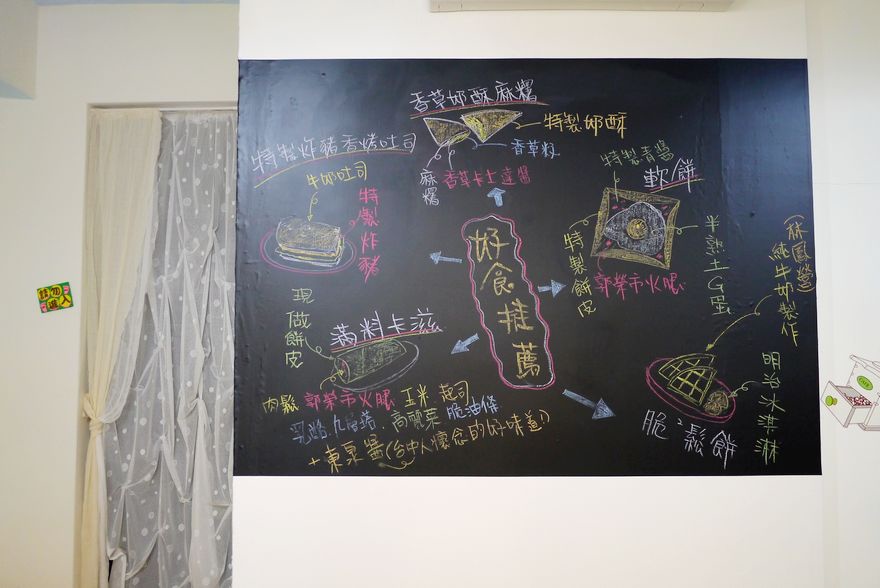 香草奶酥麻糬
特製奶酥
香草粒
麻糬
香草卡士達醬
特製炸豬香烤吐司
牛奶吐司
特製炸豬
特製青醬
軟餅
特製餅皮
半熟土G蛋
郭榮市火腿
好食推薦
現做餅皮
滿料卡滋
肉鬆 郭榮市火腿 玉米 起司
乳酪.九層塔.高麗菜 脆油條
+東泉醬(台中人懷念的好味道!)
(林鳳營)
純牛奶製作
明治冰淇淋
脆²鬆餅